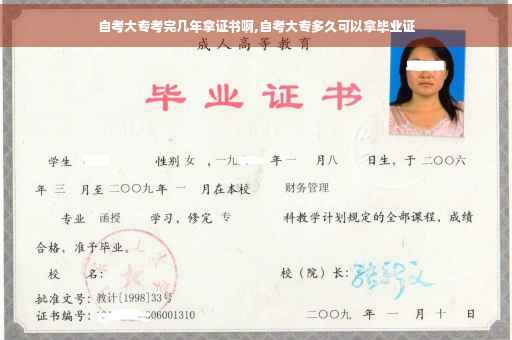 自考大专考完几年拿证书啊,自考大专多久可以拿毕业证
成人高等教育
毕业证书
学生 性别 女 ,一九 年 一 月 八 日生,于 二〇〇六
年 三 月至 二〇〇九 年 一 月在本校 财务管理
专业 函授 学习,修完 专 科教学计划规定的全部课程,成绩
合格,准予毕业。
校 名: 校(院)长:
批准文号:教计[1998]33号
证书编号: 06001310 二〇〇九 年 一 月 十 日